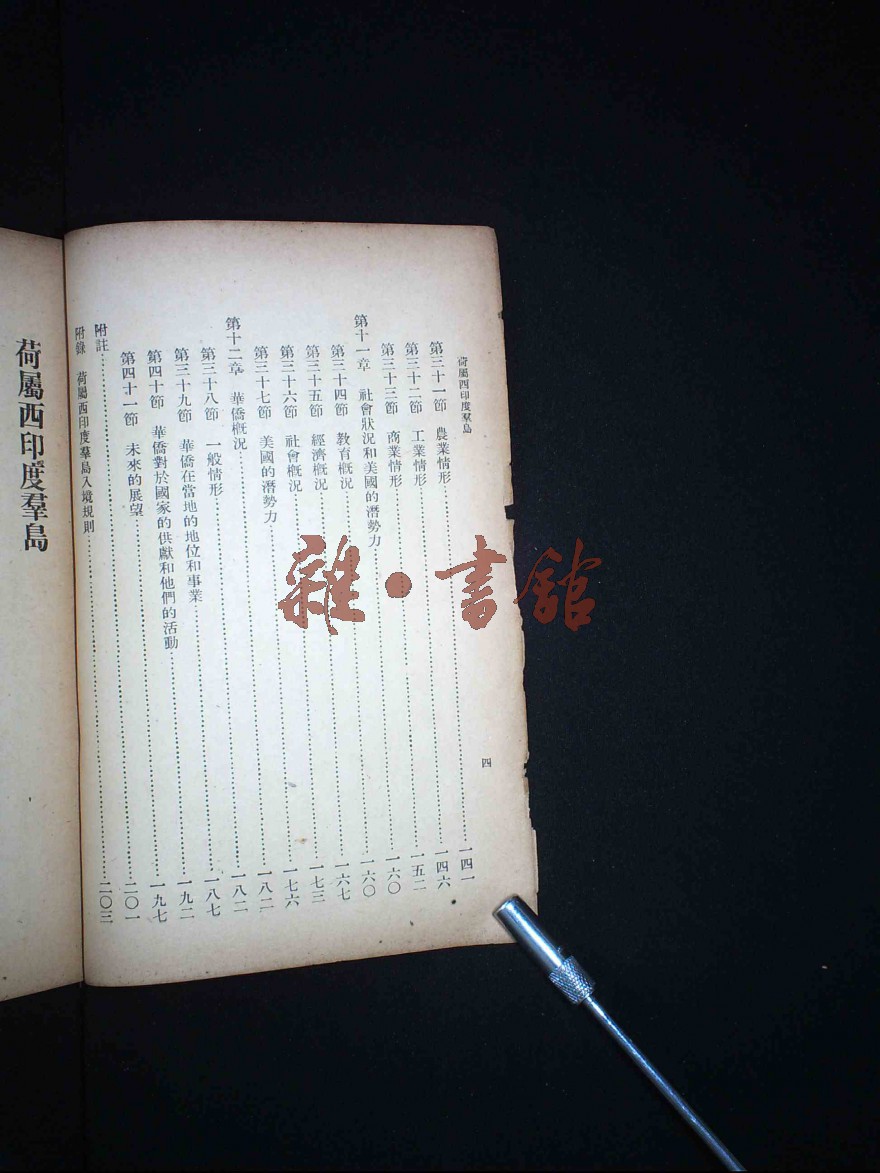 荷屬西印度羣島
四
第三十一節　農業情形……一四一
第三十二節　工業情形……一四六
第三十三節　商業情形……一五二
第十一章　社會狀況和美國的潛勢力……一六〇
第三十四節　教育概況……一六〇
第三十五節　經濟概況……一六七
第三十六節　社會概況……一七三
第三十七節　美國的潛勢力……一七六
第十二章　華僑概況……一八二
第三十八節　一般情形……一八二
第三十九節　華僑在當地的地位和事業……一八七
第四十節　華僑對於國家的供獻和他們的活動……一九二
第四十一節　未來的展望……一九七
附註……二〇一
附錄　荷屬西印度羣島入境規則……二〇三
荷屬西印度羣島
雜·書館